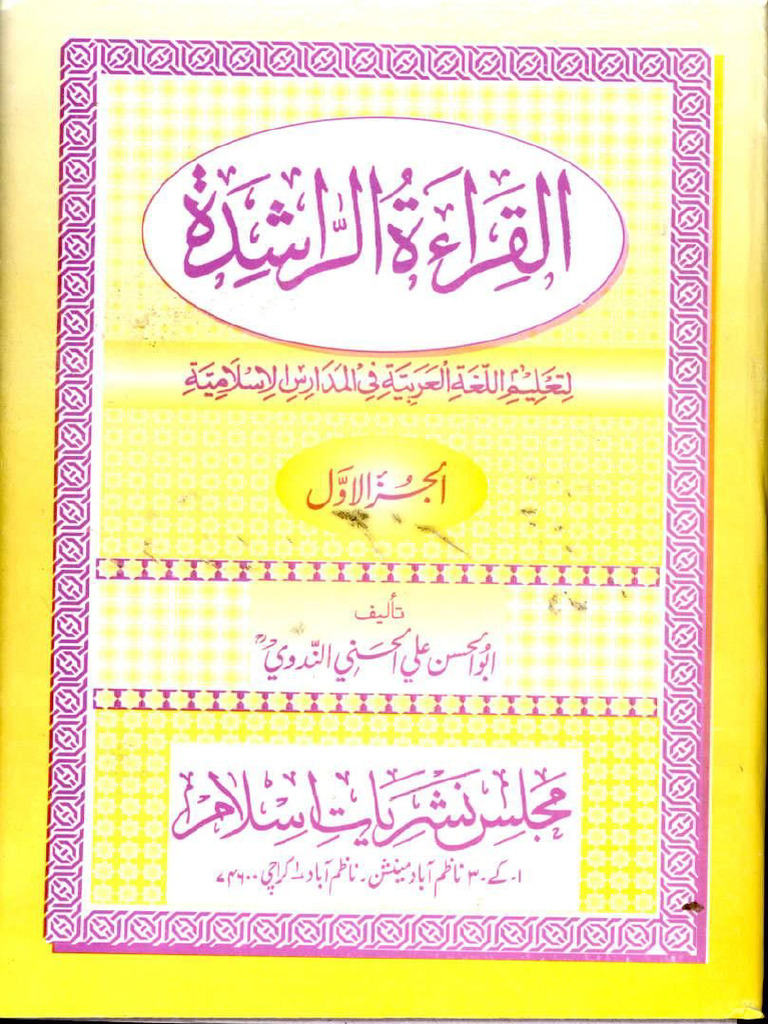 القِرَاءَةُ الرَّاشِدَة
لِتَعْلِيْمِ اللُّغَةِ العَرَبِيَّةِ فِي المَدَارِسِ الاِسْلَامِيَّةِ
الجُزْءُ الاوَّل
تأليف
ابو الحسن علي الحسني الندوي
مجلس نشریات اسلام
۱۔ کے ۔ ۳ ناظم آباد مینشن ۔ ناظم آباد ۱ کراچی ۷۴۶۰۰